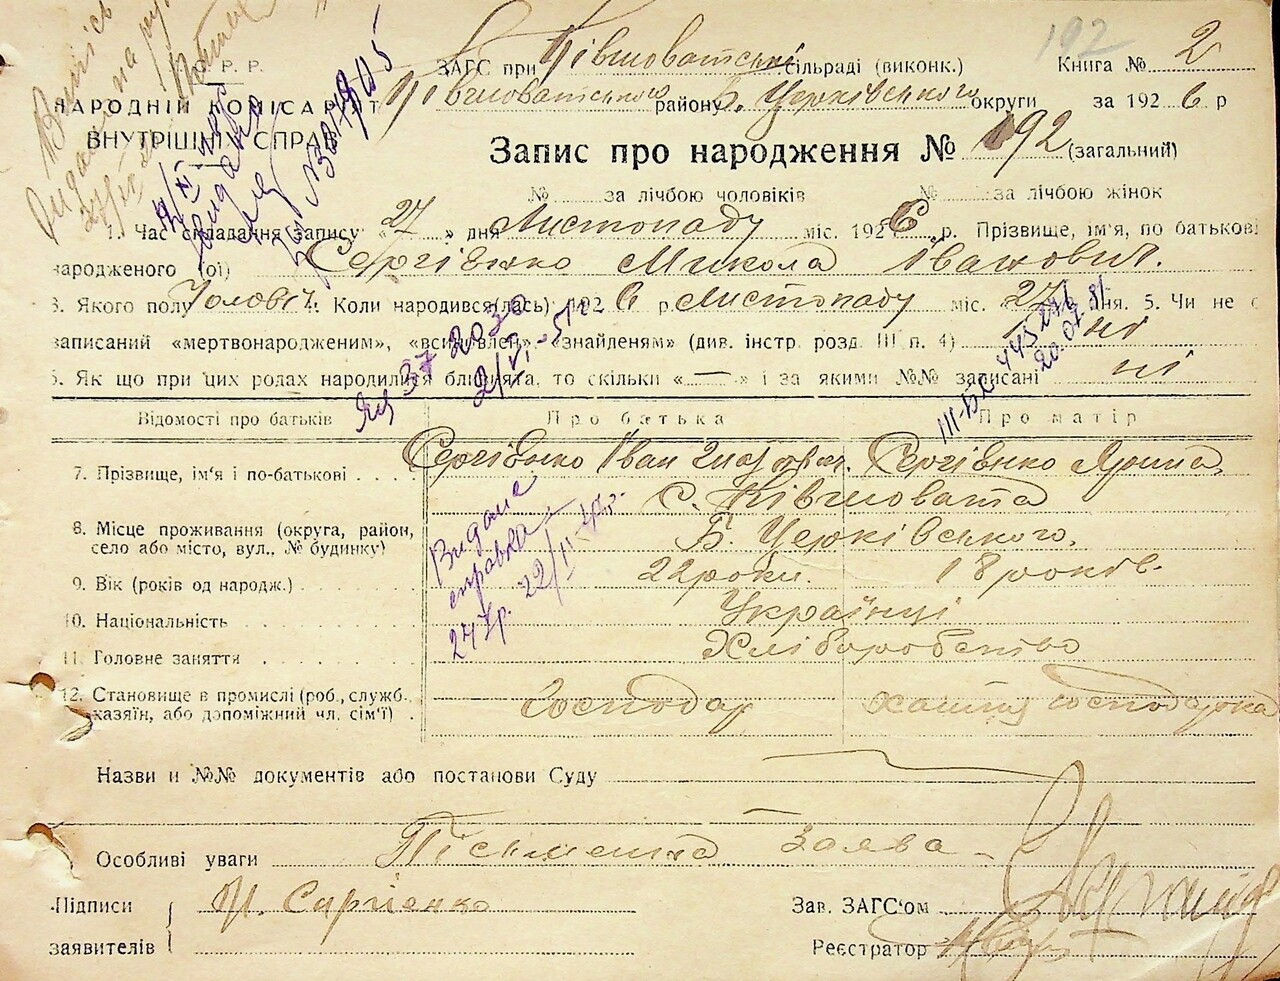 192
Р. Р.
ЗАГС при Ківшоватській сільраді (виконк.) Книга № 2
НАРОДНІЙ КОМІСАРІЯТ Ківшоватського району Б. Церківського округи за 1926 р
ВНУТРІШНІХ СПРАВ
Запис про народження № 192 (загальний)
№ за лічбою чоловіків № за лічбою жінок
1. Час складання запису «27» дня Листопаду міс. 1926 р. Прізвище, ім'я, по батькові
народженого (ої) Сергієнко Микола Іванович.
3. Якого полу Чоловіч. Коли народився(лась) 1926 р Листопаду міс. 27 дня. 5. Чи не є
записаний «мертвонародженим», «всиновлен» «знайденям» (див. інстр. розд. III п. 4) ні
6. Як що при цих родах народилися близнята, то скільки « — » і за якими №№ записані ні
Відомості про батьків Про батька Про матір
7. Прізвище, ім'я і по-батькові Сергієнко Іван Сергієнко Ярина
с. Ківшовата
8. Місце проживання (округа, район, село або місто, вул., № будинку) Б. Церківського.
9. Вік (років од народж.) 22 роки. 18 років.
10. Національність Українці
11. Головне заняття Хліборобство
12. Становище в промислі (роб., служб. хазяїн, або допоміжний чл. сім'ї) Господар господарка
Назви и №№ документів або постанови Суду
Особливі уваги Письменна заява
Підписи И. Сергиенко Зав. ЗАГС'ом
заявителів Реєстратор
Видане
справка
247р. 22/II
37 2030
III-БК 445276
20.07.81